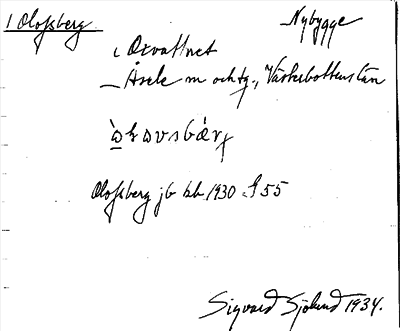 1 Olofsberg. Nybygge
i Oxvattnet
Åsele sn och tg., Västerbottens län
Olofsberg jb kb 1930 S 55
Sigvard Sjölund 1934.